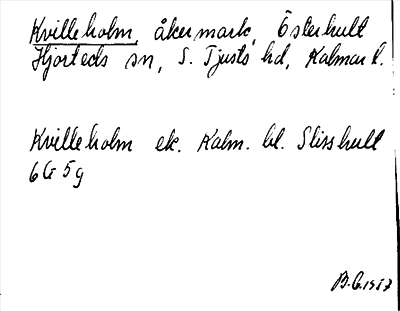 Kvilleholm, åkermark, Österhult
Hjorteds sn, S. Tjusts hd, Kalmar l.
Kvilleholm ek. Kalm. bl. Slisshult
6G 5g